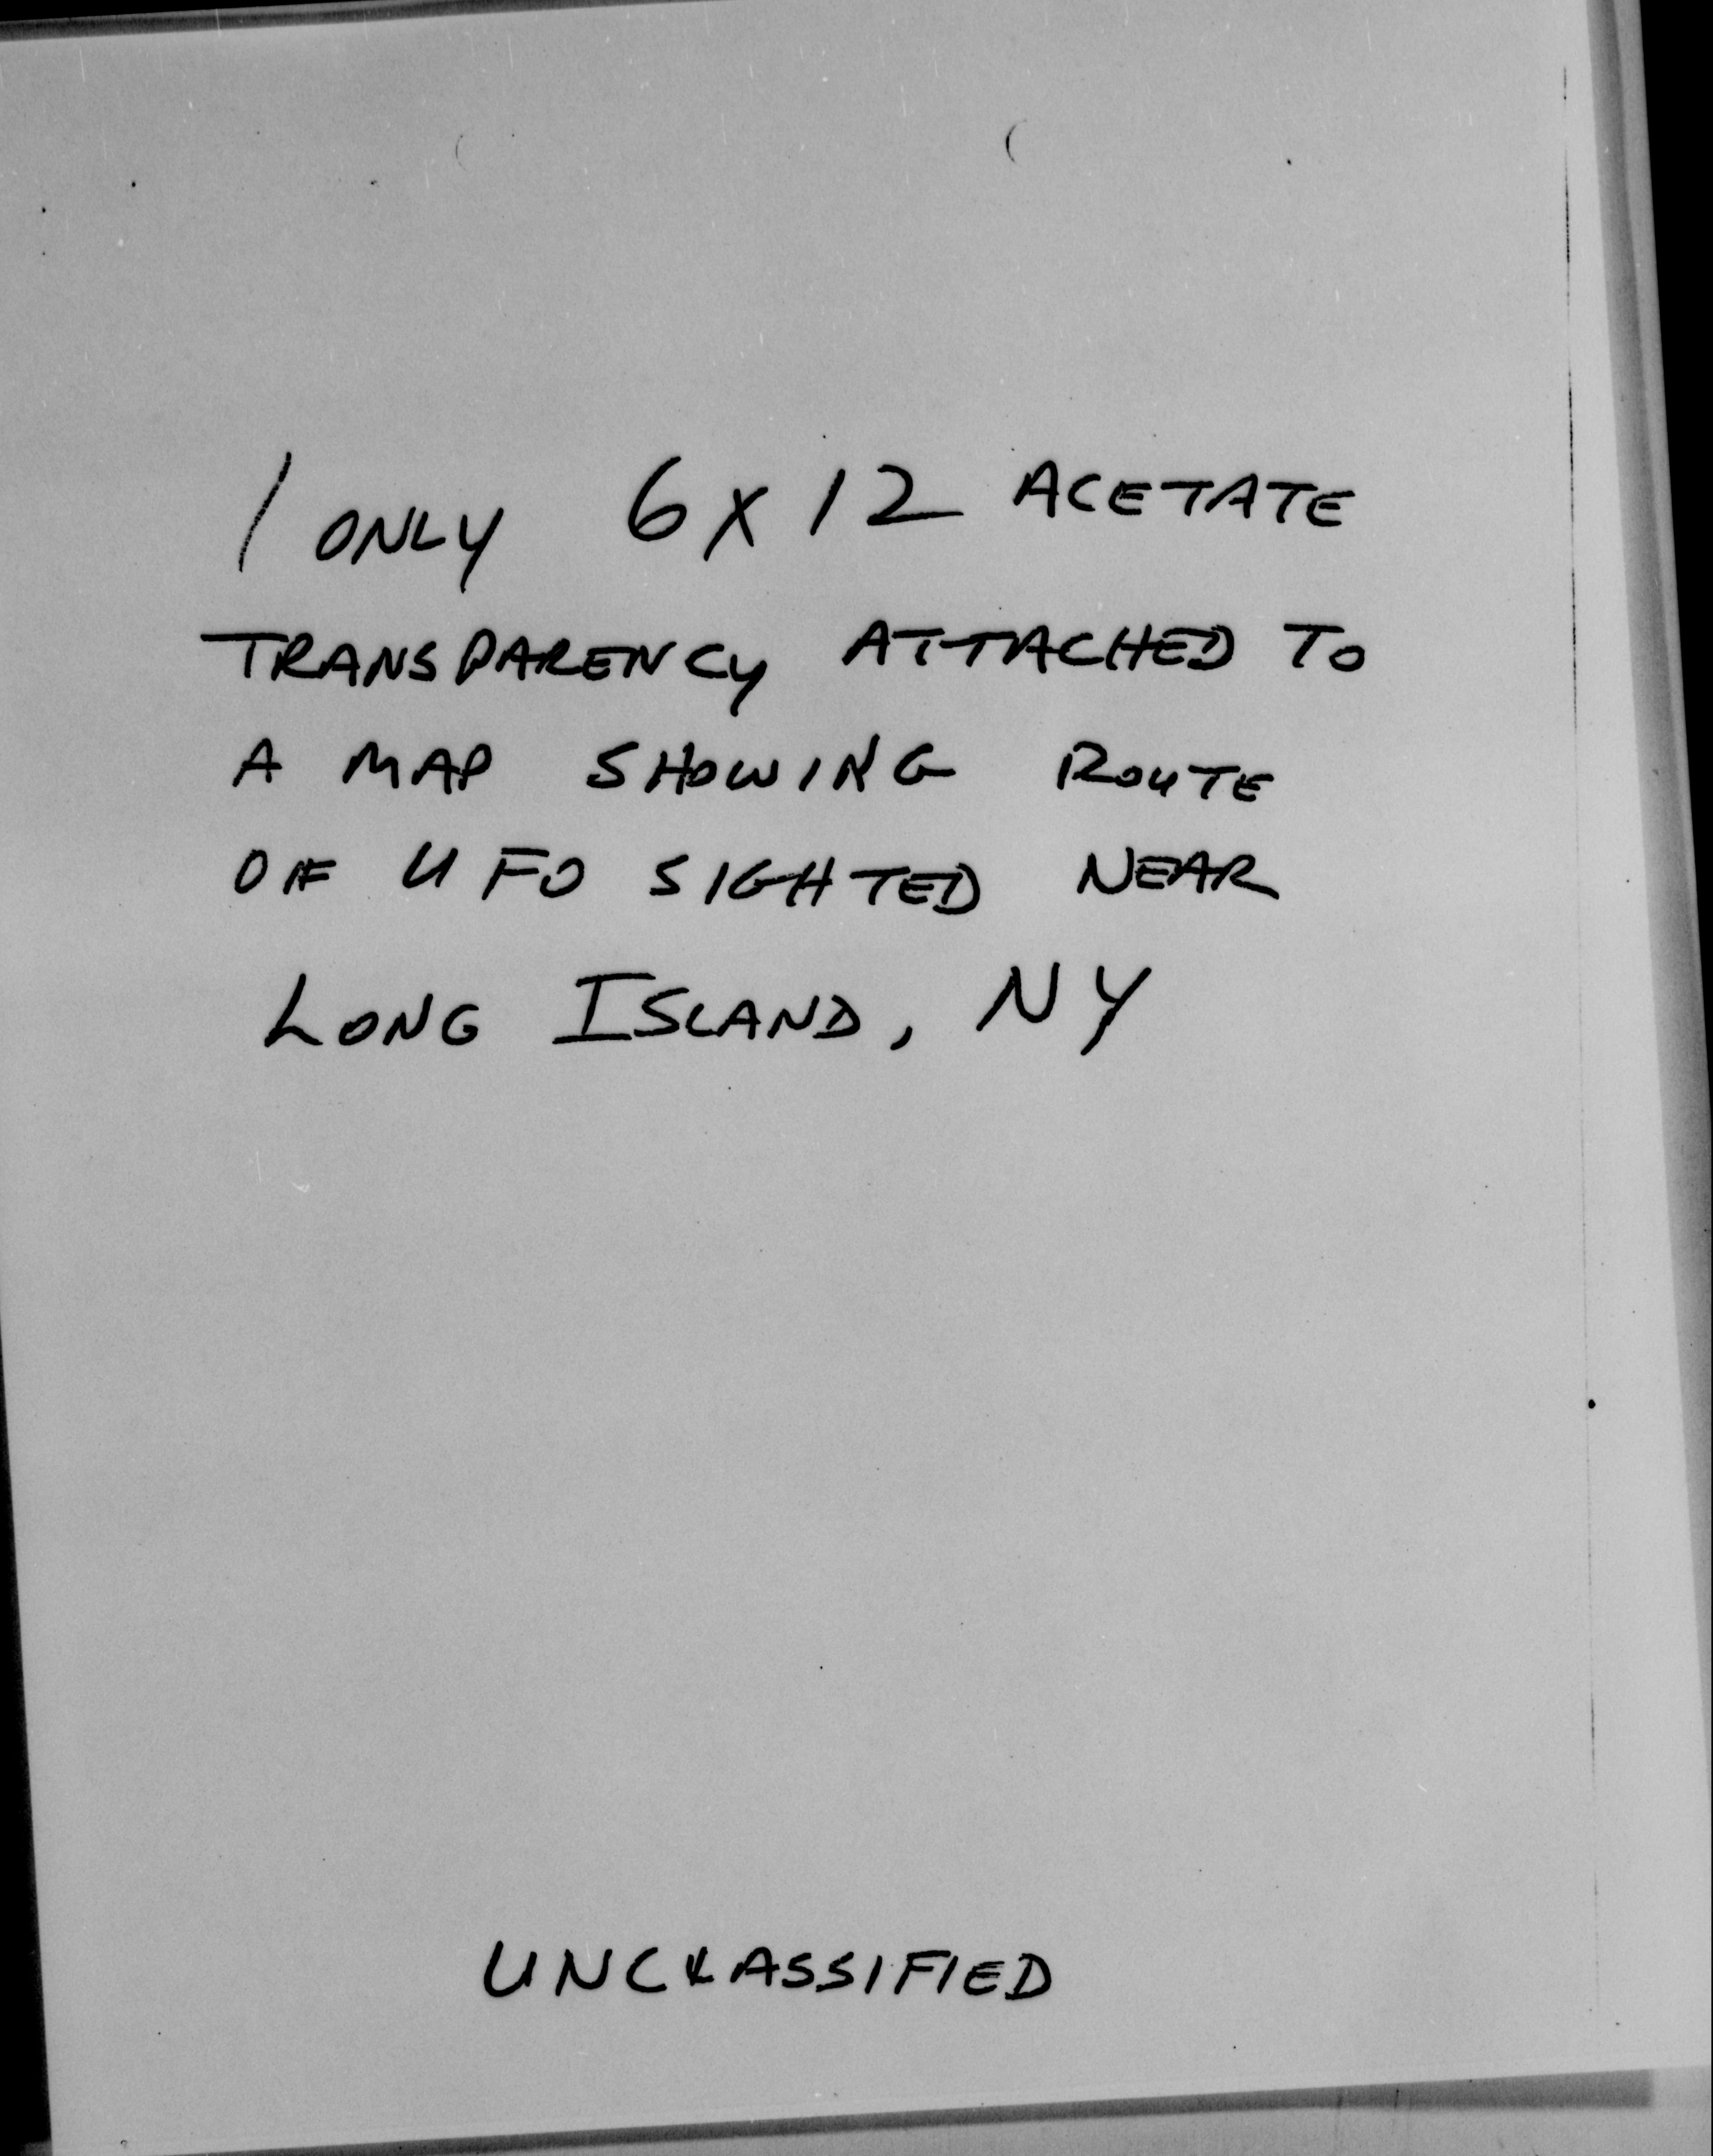 1 ONLY 6 X 12 ACETATE
TRANSPARENCY ATTACHED TO
A MAP SHOWING ROUTE
OF UFO SIGHTED NEAR
LONG ISLAND, NY
UNCLASSIFIED